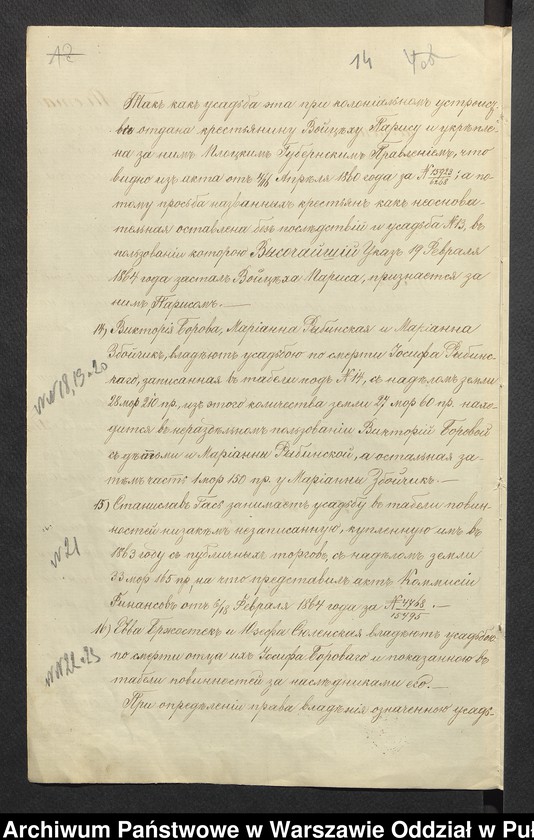 12
14
Такъ какъ усадьба эта при колоніальномъ устройс-
твѣ отдана крестьянину Войцѣху Парису и укрѣпле-
на за нимъ Плоцкимъ Губернскимъ Правленіемъ, что
видно изъ акта отъ 4/16 Апрѣля 1860 года за №; а по-
тому просьба названныхъ крестьянъ какъ неоснова-
тельная оставлена безъ послѣдствій и усадьба №13, въ
пользованіи которою Высочайшій Указъ 19 Февраля
1864 года засталъ Войцѣха Париса, признается за
нимъ, Парисомъ.—
14) Викторія Борова, Маріанна Рыбинская и Маріанна
Збойчикъ, владѣютъ усадьбою по смерти Іосифа Рыбинс-
каго, записанная въ табели подъ №14, съ надѣломъ земли
28 мор 210 пр., изъ этого количества земли 27 мор 60 пр. нахо-
дится въ нераздѣльномъ пользованіи Викторіи Боровой
съ дѣтьми и Маріанны Рыбинской, а остальная за-
тѣмъ часть 1 мор 150 пр. у Маріанны Збойчикъ.—
№№ 18, 19, 20
15) Станиславъ Гасъ занимаетъ усадьбу въ табели повин-
ностей низакѣмъ незаписанную, купленную имъ въ
1863 году съ публичныхъ торговъ, съ надѣломъ земли
33 мор 165 пр, на что представилъ актъ Коммисіи
Финансовъ отъ 6/18 Февраля 1864 года за № 4768/15495.—
№ 21
16) Ева Бржостекъ и Юзефа Сюленскія владѣютъ усадьбою
по смерти отца ихъ Іосифа Бороваго и показанною въ
табели повинностей за наслѣдниками его.—
№№ 22. 23
При опредѣленіи права владѣнія означенною усадь-
Archiwum Państwowe w Warszawie Oddział w Puł